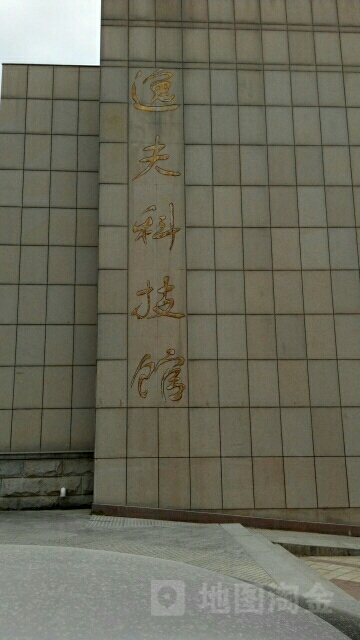 逸夫科技馆
地图淘金